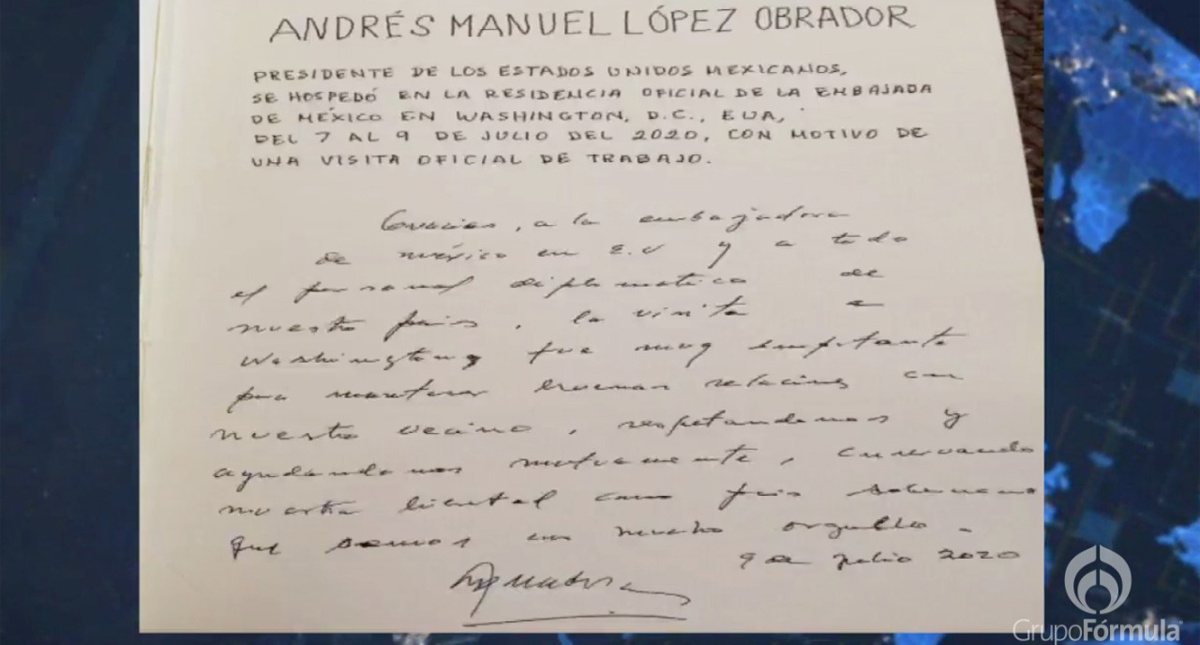 ANDRÉS MANUEL LÓPEZ OBRADOR
PRESIDENTE DE LOS ESTADOS UNIDOS MEXICANOS,
SE HOSPEDÓ EN LA RESIDENCIA OFICIAL DE LA EMBAJADA
DE MÉXICO EN WASHINGTON, D.C., EUA,
DEL 7 AL 9 DE JULIO DEL 2020, CON MOTIVO DE
UNA VISITA OFICIAL DE TRABAJO.
Gracias, a la embajadora
de méxico en E.U y a todo
el personal diplomático de
nuestro país, la visita a
Washington fue muy importante
para mantener buenas relaciones con
nuestro vecino, respetandonos y
ayudandonos mutuamente, conservando
nuestra libertad como país soberano
que somos con mucho orgullo.
9 de julio 2020
GrupoFórmula